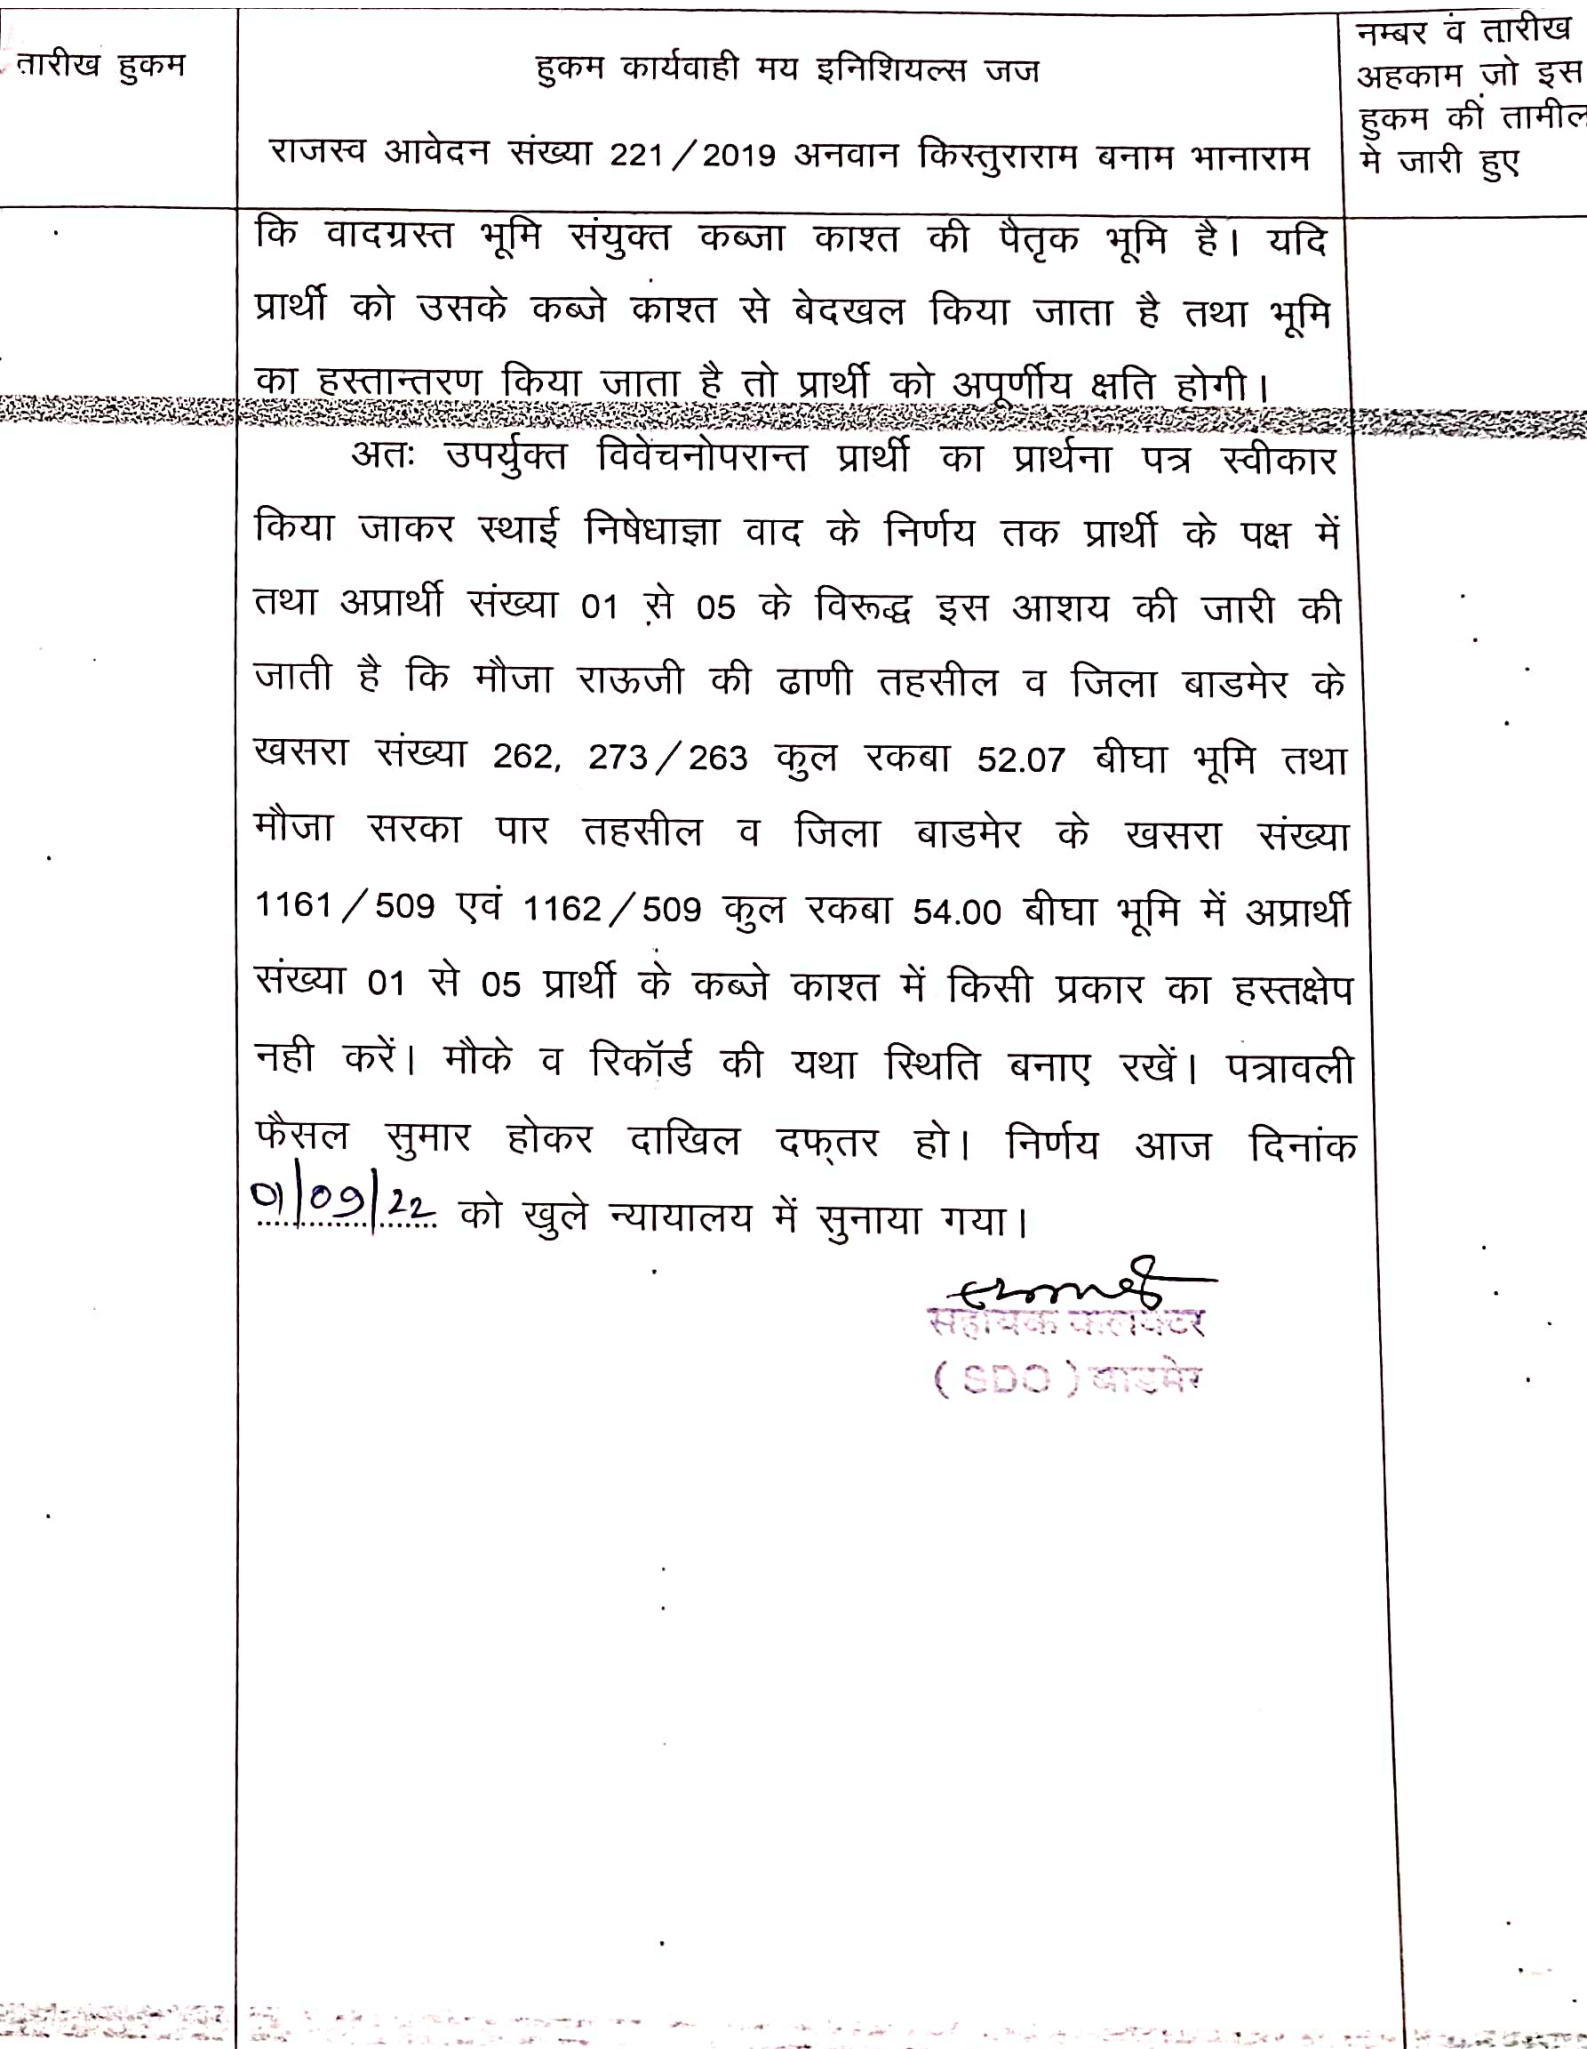 तारीख हुकम
हुकम कार्यवाही मय इनिशियल्स जज
राजस्व आवेदन संख्या 221/2019 अनवान किस्तुराराम बनाम भानाराम
नम्बर व तारीख
अहकाम जो इस
हुकम की तामील
मे जारी हुए
कि वादग्रस्त भूमि संयुक्त कब्जा काश्त की पैतृक भूमि है। यदि
प्रार्थी को उसके कब्जे काश्त से बेदखल किया जाता है तथा भूमि
का हस्तान्तरण किया जाता है तो प्रार्थी को अपूर्णीय क्षति होगी।
अतः उपर्युक्त विवेचनोपरान्त प्रार्थी का प्रार्थना पत्र स्वीकार
किया जाकर स्थाई निषेधाज्ञा वाद के निर्णय तक प्रार्थी के पक्ष में
तथा अप्रार्थी संख्या 01 से 05 के विरूद्ध इस आशय की जारी की
जाती है कि मौजा राऊजी की ढाणी तहसील व जिला बाडमेर के
खसरा संख्या 262, 273/263 कुल रकबा 52.07 बीघा भूमि तथा
मौजा सरका पार तहसील व जिला बाडमेर के खसरा संख्या
1161/509 एवं 1162/509 कुल रकबा 54.00 बीघा भूमि में अप्रार्थी
संख्या 01 से 05 प्रार्थी के कब्जे काश्त में किसी प्रकार का हस्तक्षेप
नही करें। मौके व रिकॉर्ड की यथा स्थिति बनाए रखें। पत्रावली
फैसल सुमार होकर दाखिल दफ्तर हो। निर्णय आज दिनांक
01/09/22 को खुले न्यायालय में सुनाया गया।
सहायक कलक्टर
(SDO) बाडमेर